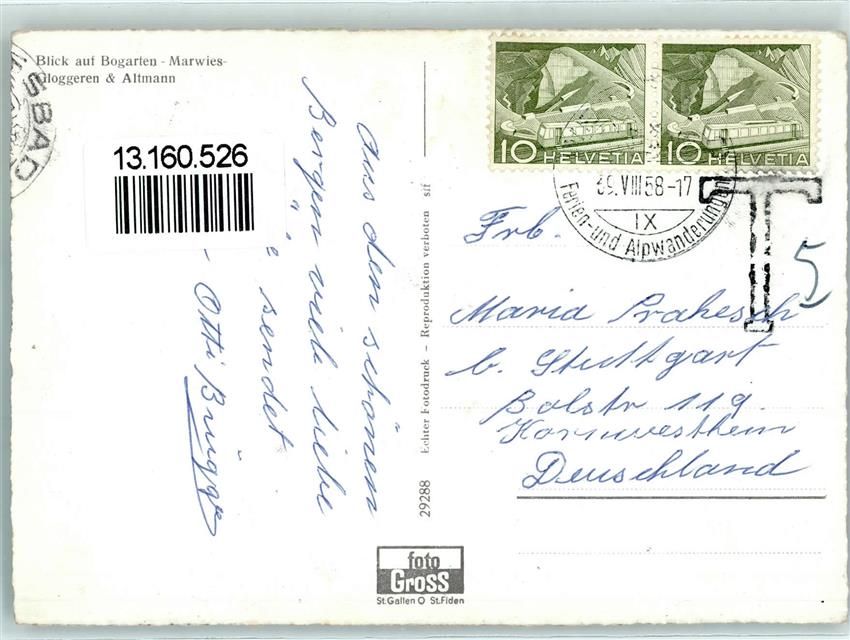 Blick auf Bogarten - Marwies-
Gloggeren & Altmann
SBAD
13.160.526
Aus den schönen
Bergen viele liebe
sendet
Otti Brügge
29288 Echter Fotodruck - Reproduktion verboten sif
foto
Gross
St.Gallen O St.Fiden
10 HELVETIA
10 HELVETIA
VIII 58-17
IX
Ferien- und Alpwanderungen
T
5
Frb.
Maria
b. Stuttgart
119.
Kornwestheim
Deuschland